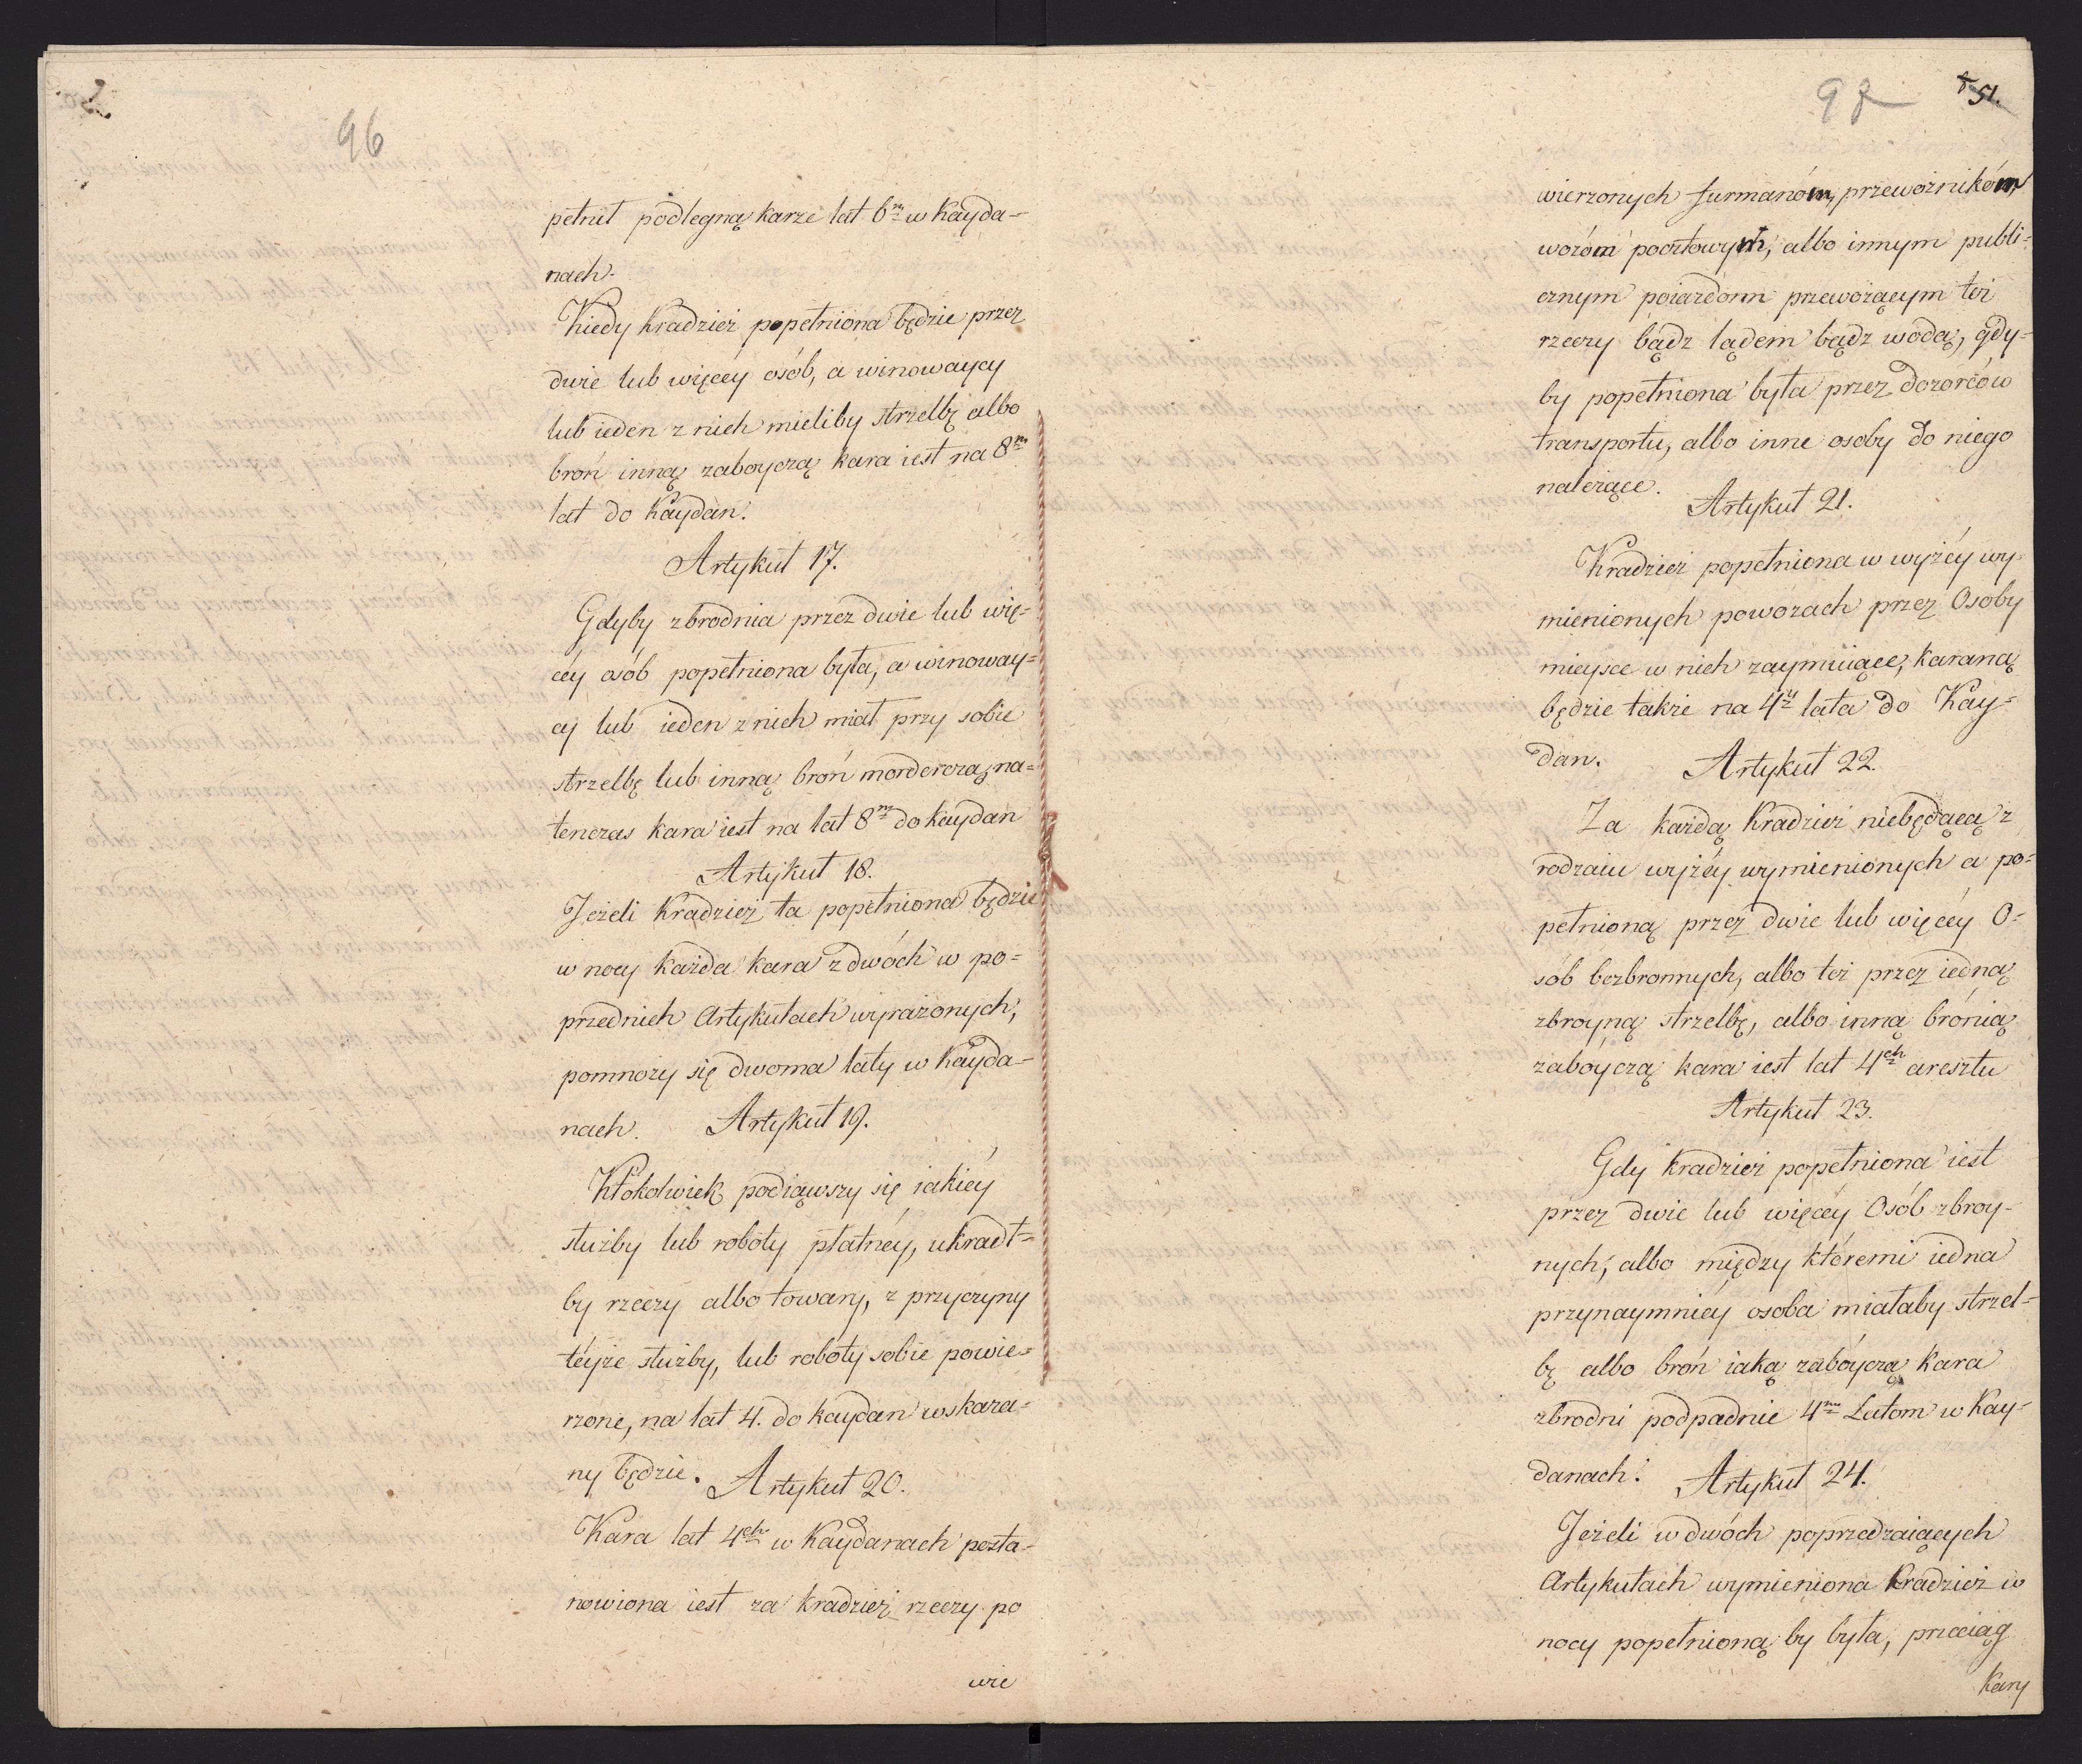 96
pełnił podlegną karze lat 6<sup>m</sup> w Kayda=
nach.
Kiedy kradzież popełniona będzie przez
dwie lub więcéy osób, a winowaycy
lub ieden z nich mieliby strzelbę albo
broń inną zaboyczą kara iest na 8<sup>m</sup>
lat do Kaydan.
Artykuł 17.
Gdyby zbrodnia przez dwie lub wię=
céy osób popełniona była, a winoway=
cy lub ieden z nich miał przy sobie
strzelbę lub inną broń morderczą, na=
tenczas kara iest na lat 8<sup>m</sup> do kaydan
Artykuł 18.
Jeżeli Kradzież ta popełniona będzie
w nocy każda kara z dwóch w po=
przednich Artykułach wyrażonych,
pomnoży się dwoma laty w Kayda=
nach. Artykuł 19.
Ktokolwiek podiąwszy się iakiéy
służby lub roboty płatnéy, ukradł=
by rzeczy albo towary, z przyczyny
téyże służby, lub roboty sobie powie=
rzone, na lat 4. do kaydan wskaza=
ny będzie. Artykuł 20.
Kara lat 4<sup>ch</sup> w Kaydanach posta=
nowiona iest za kradzież rzeczy po
wie
97 51.
wierzonych furmanóm, przewoźnikóm,
wozóm pocztowym, albo innym publi=
cznym poiazdom przewożącym też
rzeczy bądz lądem bądz wodą, gdy=
by popełniona była przez dozorców
transportu, albo inne osoby do niego
należące.
Artykuł 21.
Kradzież popełniona w wyżéy wy=
mienionych powozach przez Osoby
mieysce w nich zaymuiące, karaną
będzie także na 4<sup>y</sup> lata do Kay=
dan. Artykuł 22.
Za każdą Kradzież niebędącą z
rodzaiu wyżéy wymienionych a po=
pełnioną przez dwie lub więcéy O=
sób bezbronnych, albo też przez iedną
zbroyną strzelbę, albo inną bronią
zaboyczą kara iest lat 4<sup>ch</sup> aresztu
Artykuł 23.
Gdy kradzież popełniona iest
przez dwie lub więcéy Osób zbroy=
nych, albo między któremi iedna
przynaymniéy osoba miałaby strzel=
bę albo broń iaką zabóyczą kara
zbrodni podpadnie 4<sup>m</sup> Latom w Kay=
danach. Artykuł 24.
Jeżeli w dwóch poprzedzaiących
Artykułach wymieniona Kradzież w
nocy popełnioną by była, przeciąg
Kary